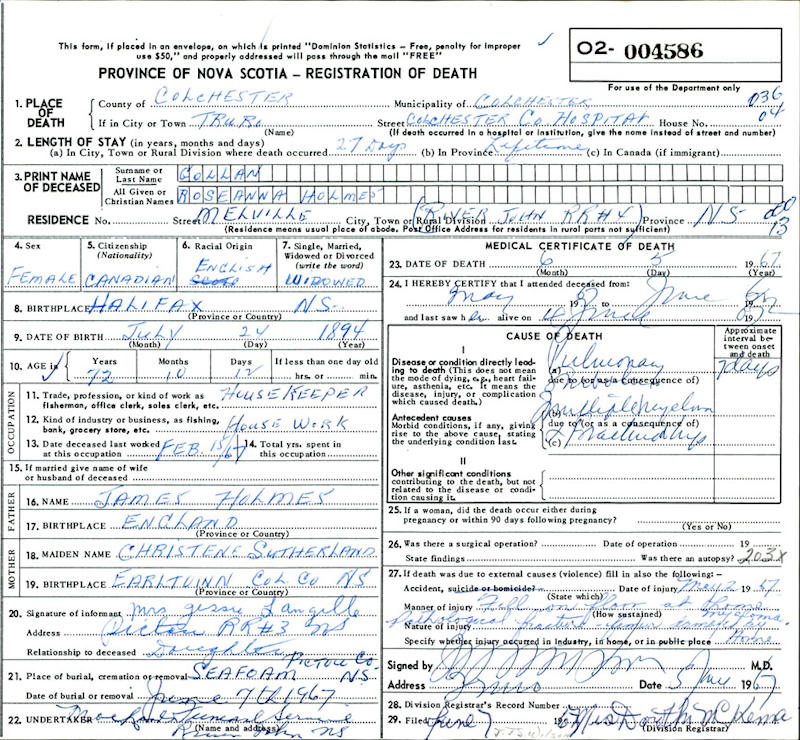 This form, if placed in an envelope, on which is printed "Dominion Statistics – Free, penalty for improper
use $50," and properly addressed will pass through the mail "FREE"
O2- 004586
PROVINCE OF NOVA SCOTIA – REGISTRATION OF DEATH
For use of the Department only
1. PLACE OF DEATH
County of COLCHESTER Municipality of COLCHESTER 036
If in City or Town TRURO Street COLCHESTER CO. HOSPITAL House No. 04
(Name) (If death occurred in a hospital or institution, give the name instead of street and number)
2. LENGTH OF STAY (in years, months and days)
(a) In City, Town or Rural Division where death occurred 27 Days (b) In Province Lifetime (c) In Canada (if immigrant)
3. PRINT NAME OF DECEASED
Surname or Last Name GOLLAN
All Given or Christian Names ROSEANNA HOLMES
RESIDENCE No. Street MELVILLE City, Town or Rural Division (RIVER JOHN RR#4) Province NS 13
(Residence means usual place of abode. Post Office Address for residents in rural parts not sufficient)
4. Sex FEMALE
5. Citizenship (Nationality) CANADIAN
6. Racial Origin ENGLISH
7. Single, Married, Widowed or Divorced (write the word) WIDOWED
8. BIRTHPLACE HALIFAX NS
(Province or Country)
9. DATE OF BIRTH July 24 1894
(Month) (Day) (Year)
10. AGE in Years 72 Months 10 Days 12 If less than one day old hrs. or min.
OCCUPATION
11. Trade, profession, or kind of work as fisherman, office clerk, sales clerk, etc. HOUSEKEEPER
12. Kind of industry or business, as fishing, bank, grocery store, etc. HOUSE WORK
13. Date deceased last worked at this occupation FEB 15/67 14. Total yrs. spent in this occupation
15. If married give name of wife or husband of deceased
FATHER
16. NAME JAMES HOLMES
17. BIRTHPLACE ENGLAND
(Province or Country)
MOTHER
18. MAIDEN NAME CHRISTENE SUTHERLAND
19. BIRTHPLACE EARLTUINN COL CO NS
(Province or Country)
20. Signature of informant Mrs Jessie Langille
Address Pictou RR#3 NS
Relationship to deceased Daughter
21. Place of burial, cremation or removal SEAFOAM PICTOU CO. NS
Date of burial or removal June 7th 1967
22. UNDERTAKER Funeral Service
River John NS
(Name and address)
MEDICAL CERTIFICATE OF DEATH
23. DATE OF DEATH 6 5 1967
(Month) (Day) (Year)
24. I HEREBY CERTIFY that I attended deceased from:
May 19 to June 19
and last saw her alive on 4 June 19
CAUSE OF DEATH
Approximate interval between onset and death
I
Disease or condition directly leading to death (This does not mean the mode of dying, e.g., heart failure, asthenia, etc. it means the disease, injury, or complication which caused death.)
(a) Pulmonary 7 days
due to (or as a consequence of)
Antecedent causes
Morbid conditions, if any, giving rise to the above cause, stating the underlying condition last.
(b) multiple myeloma
due to (or as a consequence of)
(c)
II
Other significant conditions
contributing to the death, but not related to the disease or condition causing it.
25. If a woman, did the death occur either during pregnancy or within 90 days following pregnancy?
(Yes or No)
26. Was there a surgical operation? Date of operation 19
State findings Was there an autopsy? 203X
27. If death was due to external causes (violence) fill in also the following –
Accident, suicide or homicide? Date of injury May 2 1967
(State which)
Manner of injury Fell on floor at home
(How sustained)
Nature of injury Pathological fracture
Specify whether injury occurred in industry, in home, or in public place Home
Signed by M.D.
Address Truro Date 5 June 1967
28. Division Registrar's Record Number
29. Filed June 7 19